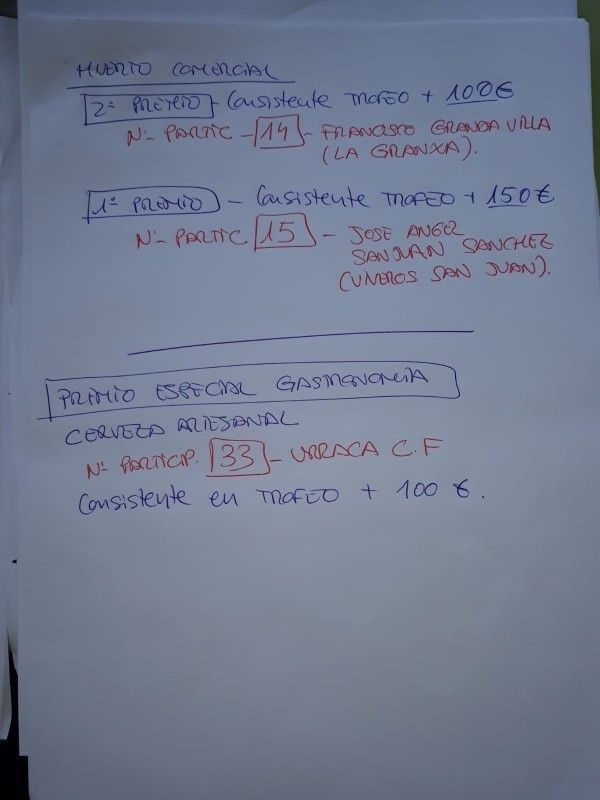 HUERTO COMERCIAL
2º PREMIO - Consistente TROFEO + 100€
Nº PARTIC - 14 - FRANCISCO GRANDA VILLA
(LA GRANXA).
1º PREMIO - Consistente TROFEO + 150€
Nº PARTIC 15 - JOSE ANGEL
SANJUAN SANCHEZ
(VIVEROS SAN JUAN).
PREMIO ESPECIAL GASTRONOMIA
CERVEZA ARTESANAL
Nº PARTICIP. 33 - URRACA C.F
Consistente en TROFEO + 100 €.